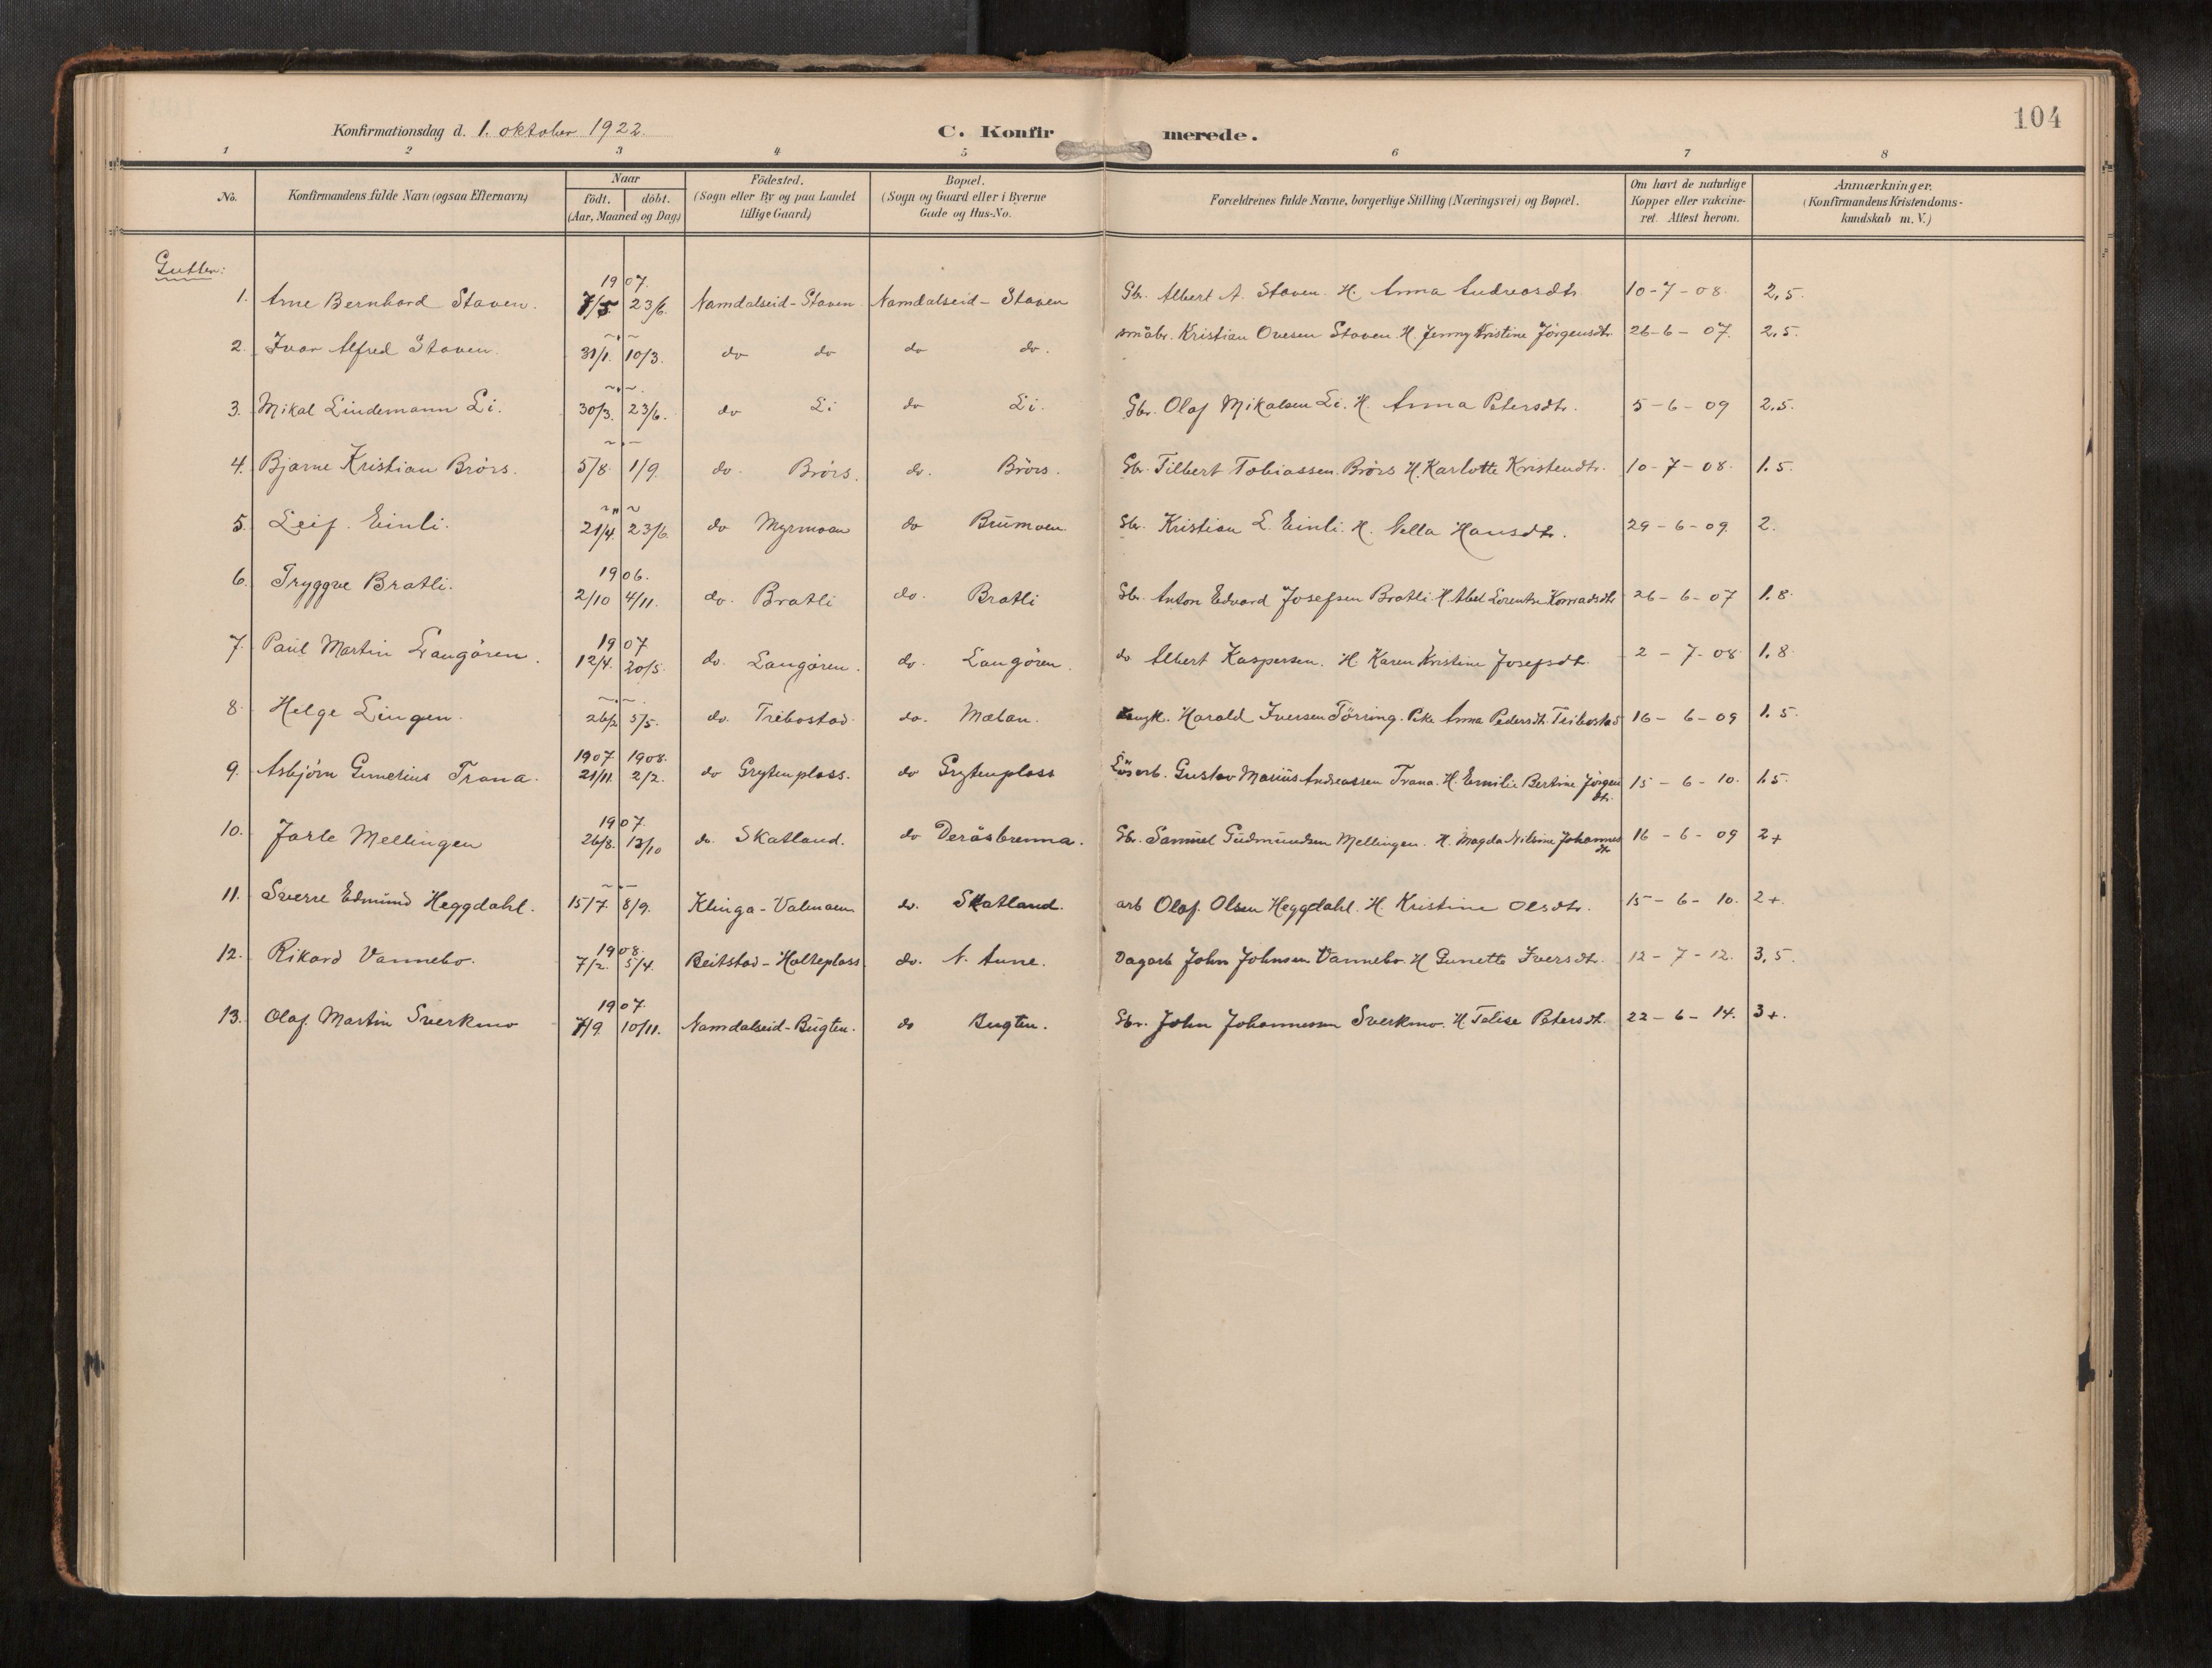 104
Konfirmationsdag d. 1. oktober 1922.
C. Konfirmerede.
1 2 3 4 5 6 7 8
No. Konfirmandens fulde Navn (ogsaa Efternavn) Naar født. døbt. (Aar, Maaned og Dag) Fødested. (Sogn eller By og paa Landet tillige Gaard) Bopæl. (Sogn og Gaard eller i Byerne Gade og Hus-No. Forældrenes fulde Navne, borgerlige Stilling (Næringsvei) og Bopæl. Om havt de naturlige Kopper eller vakcineret. Attest herom. Anmærkninger. (Konfirmandens Kristendomskundskab m. V.)
Gutter:
1. Arne Bernhard Staven. 1907. 7/5 23/6. Namdalseid-Staven Namdalseid-Staven Gbr. Albert A. Staven. H. Anna Andreasdtr. 10-7-08. 2,5.
2. Ivar Alfred Staven. ~„~ 31/1. 10/3. do do do do. småbr. Kristian Ovesen Staven. H. Jenny Kristine Jörgensdtr. 26-6-07. 2,5.
3. Mikal Lindemann Li. ~„~ 30/3. 23/6. do Li do Li. Gbr. Olaf Mikalsen Li. H. Anna Petersdtr. 5-6-09 2,5.
4. Bjarne Kristian Brörs. ~„~ 5/8. 1/9. do. Brörs. do. Brörs. Gbr. Tilbert Tobiassen Brörs H. Karlotte Kristendtr. 10-7-08. 1.5.
5. Leif Einli. ~„~ 21/4. 23/6. do Myrmoan do Brumoen. Gbr. Kristian L. Einli. H. Hansdtr. 29-6-09. 2.
6. Tryggve Bratli. 1906. 2/10 4/11. do. Bratli do. Bratli Gbr. Anton Edvard Josefsen Bratli. H. Abel Lorentse Konradsdtr 26-6-07 1.8.
7. Paul Martin Langören. 1907 12/4. 20/5. do. Langören. do. Langören. do Albert Kaspersen. H. Karen Kristine Josefsdtr. 2-7-08 1.8.
8. Helge Lingen. ~„~ 26/2 5/5. do. Trebostad. do. Mælan. Ungk. Harald Iversen Törring. Pike Anna Pedersdtr. Teibostad 16-6-09 1.5.
9. Asbjörn Gunerius Trana. 1907. 1908. 21/11. 2/2. do Grytenplass. do Grytenplass Lösarb. Gustav Marius Andreassen Trana. H. Emilie Bertine Jörgensdtr. 15-6-10. 1.5.
10. Jarle Mellingen 1907. 26/8. 13/10 do. Skatland. do Deråsbrenna. Gbr. Samuel Gudmundsen Mellingen. H. Magda Nilsine Johannesdtr 16-6-09 2+
11. Sverre Edmund Heggdahl. ~„~ 15/7. 8/9. Klinga-Valmoen do. Skatland. arb Olaf Olsen Heggdahl. H. Kristine Olsdtr. 15-6-10. 2+.
12. Rikard Vannebo. 1908. 7/2. 5/4. Beitstad-Holteplass. do. N. Aune. Dagarb John Johnsen Vannebo. H Gunette Iversdtr. 12-7-12. 3,5.
13. Olaf Martin Sverkmo 1907 7/9. 10/11. Namdalseid-Bugten. do Bugten. Gbr. John Johannessen Sverkmo. H. Telise Petersdtr. 22-6-14. 3+.